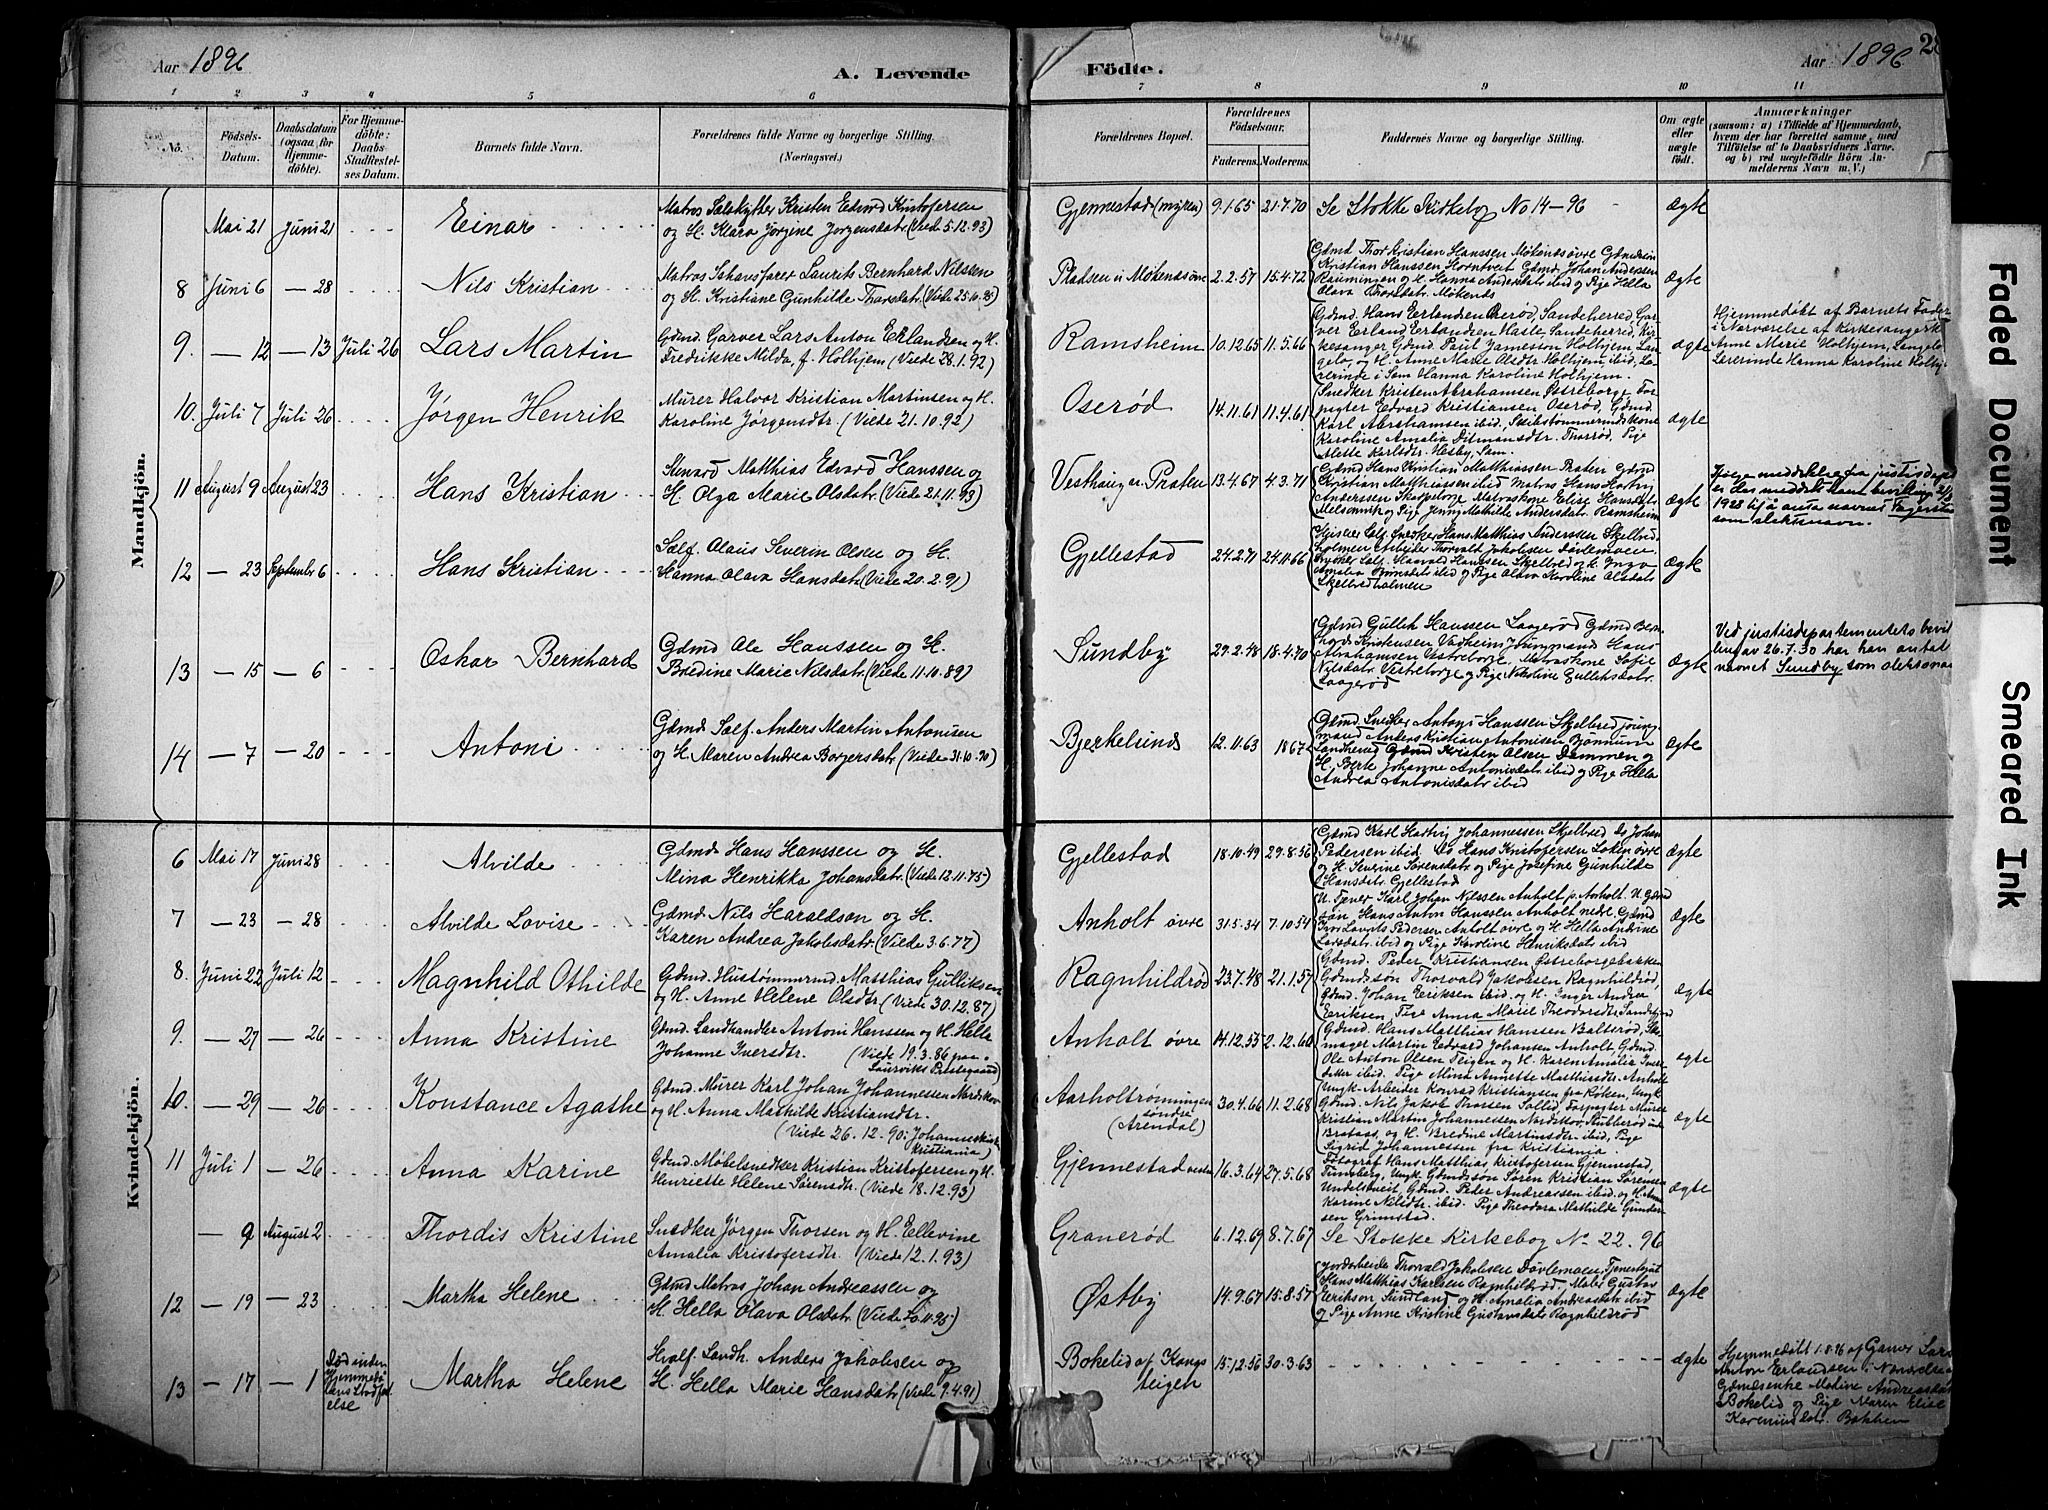 Aar 1896
A. Levende
Födte.
Aar 1896
28
1 2 3 4 5 6 7 8 9 10 11
No.
Födsels-
Datum.
Daabsdatum
(ogsaa for
Hjemme-
döbte).
For Hjemme-
döbte:
Daabs-
Stadfæstel-
ses Datum.
Barnets fulde Navn.
Forældrenes fulde Navne og borgerlige Stilling.
(Næringsvei.)
Forældrenes Bopæl.
Forældrenes
Födselsaar.
Faderens. Moderens.
Faddernes Navne og borgerlige Stilling.
Om ægte
eller
uægte
födt.
Anmærkninger
(saasom: a) i Tilfælde af Hjemmedaab,
hvem der har forrettet samme, med
Tilföielse af to Daabsvidners Navne.
og b) ved uægtefödte Börn An-
melderens Navn m. V.)
Mandkjön.
Mai 21 Juni 21 Einar
Matros Sælskytter Kristen Edvard Kristofersen
og H. Klara Jørgine Jørgensdatr (Viede 5.12.93)
Gjennestad (myren) 9.1.65 21.7.70 Se Stokke Kirkebog No 14-96 Ægte
8 Juni 6 — 28 Nils Kristian
Matros Laurits Bernhard Nilssen
og H. Kristiane Gunhilde Thorsdatr (Viede 25.10.95)
Pladsen u. Møkenes øvre 2.2.57 15.4.72
Gdmd Thor Kristian Hanssen Møkenes øvre
Kristian Hanssen Horntvet Gdmd Johan Andersen
Raumingen og H. Hanna Andersdatr ibid og Pige Hella
Olava Thorsdatr Møkenes
Ægte
9. — 12 — 13 Juli 26 Lars Martin
Gdmd. Garver Lars Anton Erlandsen og H.
Fredrikke Milda, f. Holhjem (Viede 28.1.92)
Ramsheim 10.12.65 11.5.66
Gdmd. Hans Erlandsen Sandeherred, Gar-
ver Erland Erlandsen Hasle Sandeherred, Kir-
kesanger Gdmd. Paul Jameson Holhjem Lan-
gelø, og H. Anne Marie Olsdtr Holhjem ibid, Læ-
rerinde i Sem Hanna Karoline Holhjem.
ægte
Hjemmedøbt af Barnets Fader
i Nærværelse af Kirkesangerk.
Anne Marie Holhjem, Langelø
Lærerinde Hanna Karoline Holhj.
10. Juli 7 Juli 26 Jørgen Henrik
Murer Halvor Kristian Martinsen og H.
Karoline Jørgensdtr. (Viede 21.10.92)
Oserød 14.11.61 11.4.61
Snedker Kristen Abrahamsen Østreborge For-
pagter Edvard Kristiansen Oserød, Gdmd.
Karl Abrahamsen ibid, Skibstømmermandskone
Karoline Amalia Ditmansdtr. Thorrød, Pige
Mette Karlsdtr. Hesby, Sem.
ægte
11 August 9 August 23 Hans Kristian
Stenarb Matthias Edvard Hanssen og
H. Olga Marie Olsdatr (Viede 21.11.93)
Vesthaug u. Praten 13.4.67 4.3.71
Gdmd Hans Kristian Matthiassen Praten Gdmd
Kristian Matthiassen ibid Matros Hans Hartvig
Anderssen Skogeborge Matroskone Elise Hansdatr
Melsomvik og Pige Jenny Mathilde Andersdatr Ramsheim
Ægte
Ifølge meddelelse fra justisdept
er der meddelt ham bevilling
1923 til å anta navnet Fagersten
som slektsnavn.
12 — 23 September 6 Hans Kristian
Sælf. Olaus Severin Olsen og H.
Hanna Olava Hansdatr (Viede 20.2.91)
Gjellestad 24.2.71 24.11.66
Snedker Hans Matthias Anderssen Skjelbred-
holmen Arbeider Thorvald Jakobsen Døvlemoen
Skjelbred og H. Inga
Amalia ibid og Pige Olava Karoline Olsdatr
Skjelbredholmen
Ægte
13 — 15 — 6 Oskar Bernhard
Gdmd Ole Hanssen og H.
Bredine Marie Nilsdatr (Viede 11.10.89)
Sundby 29.2.48 18.4.70
Gdmd Gullik Hanssen Laagerød Gdmd Bern-
hard Kristensen Vadheim Jungmand Hans
Abrahamsen Vestreborge, Matroskone Sofie
Nilsdatr Vestreborge og Pige Nikoline Gulliksdatr
Laagerød
Ægte
Ved justisdepartementets bevil-
ling av 26.7.30 har han antatt
navnet Sundby som slektsnavn
14 — 7 — 20 Antoni
Gdmd Sælf. Anders Martin Antonisen
og H. Maren Andrea Borgersdatr (Viede 31.10.90)
Bjerkelund 12.11.63 1867
Gdmd Snedker Antoni Hanssen Skjelbred joung-
mand Anders Kristian Antonisen Bjønnum
Sandherred Gdmd Kristen Olsen Dammen og
H. Berte Johanne Antonisdatr ibid og Pige Hella
Andrea Antonisdatr ibid
Ægte
Kvindekjön.
6 Mai 17 Juni 28 Alvilde
Gdmd Hans Hanssen og H.
Mina Henrikka Johansdatr (Viede 12.11.75)
Gjellestad 18.10.49 29.8.56
Gdmd Karl Hartvig Johannessen Skjelbred Do Johan
Pedersen ibid Do Hans Kristofersen Søken øvre
og H. Severine Sørensdatr og Pige Josefine Gunhilde
Hansdatr Gjellestad
Ægte
7 — 23 — 28 Alvilde Lovise
Gdmd. Nils Haraldson og H.
Karen Andrea Jakobsdatr (Viede 3.6.77)
Anholt øvre 31.5.34 7.10.54
U. Tjener Karl Johan Nilssen Anholt p. Anholt. U. Gdmd
søn Hans Anton Hanssen Anholt nedre Gdmd
Laurits Pedersen Anholt øvre og H Hella Andrine
Larsdatr ibid og Pige Karoline Henriksdatr ibid
Ægte
8. Juni 22 Juli 12 Magnhild Othilde
Gdmd. Hustømmermd Matthias Gulliksen
og H. Anne Helene Olsdtr (Viede 30.12.87)
Ragnhildrød 23.7.48 21.1.57
Gdmd. Peder Kristiansen Østreborgebakken
Gdmdssøn Thorvald Jakobsen Ragnhildrød,
Gdmd. Johan Eriksen ibid. og H. Inger Andrea
Eriksen Pige Anna Marie Theodorsdtr Sandefjord
ægte
9. — 27 — 26 Anna Kristine
Gdmd. Landhandler Antoni Hanssen og H. Hella
Johanne Iversdtr. (Viede 19.3.86 paa
Laurviks Prestegaard)
Anholt øvre 14.12.55 2.12.66
Gdmd. Hans Matthias Hanssen Baltsrød, Sko-
mager Martin Edvard Johansen Anholt, Gdmd.
Ole Anton Olsen Teigen og H. Karen Amalia Iver-
datter ibid. Pige Mina Annette Matthisdtr. Anholt
ægte
10. — 29 — 26 Konstance Agathe
Gdmd. Murer Karl Johan Johannessen Nordskov
og H. Anna Mathilde Kristiansdtr.
(Viede 26.12.90 i Johanneskirk.
Kristiania)
Aarholtrønningen
søndre
(Arendal)
30.4.66 11.2.68
Ungk.-Arbeider Konrad Kristiansen fra Røken, Ungk.
Gdmd. Nils Jakob Thorsen Sollid, Forpagter Murer
Kristian Martin Johannesen Nordskov, Stubberød u.
Brataas, og H. Bredine Martinsdtr. ibid, Pige
Sigrid Johannessen fra Kristiania.
ægte
11 Juli 1 — 26 Anna Karine
Gdmd. Møbelsnedker Kristian Kristofersen og H.
Henriette Helene Sørensdtr. (Viede 18.12.93)
Gjennestad 16.3.64 27.5.68
Fotograf Hans Matthias Kristofersen Gjennestad,
Tunsberg, Ungk. Gdmdssøn Søren Kristian Sørensen
Undelstveit, Gdmd. Peder Andreassen ibid og H. Ann
Karine Nilsdtr. ibid. Pige Theodora Mathilde Gunder-
sen Grimstad.
ægte
— 9 August 2 Thordis Kristine
Snedker Jørgen Thorsen og H. Ellevine
Amalia Kristofersdtr. (Viede 12.1.93)
Granerød 6.12.69 8.7.67 Se Stokke Kirkebog No 22. 96
12 — 19 — 23 Martha Helene
Gdmd Matros Johan Andreassen og
H. Hella Olava Olsdatr (Viede 20.11.95)
Østby 14.9.67 15.8.57
Jordarbeider Thorvald Jakobsen Døvlemoen, Tjener
Hans Matthias Karlsen Ragnhildrød, Maler Gustav
Erikson Sundland og H. Amalia Andreasdatr ibid
og Pige Anne Kristine Gustavsdatr Ragnhildrød
Ægte
13 — 17 — 1
Død inden
Hjemmedaa-
bens Stadfæst-
else
Martha Helene
Hvalf. Landh. Anders Jakobsen og
H. Hella Marie Hansdatr (Viede 9.4.91)
Bokelid af Kongs
teigen
15.12.56 30.3.63
ægte
Hjemmedøbt 1.8.96 af Garver Lars
Anton Erlandsen i Nærværelse a
Gdmdsenke Maline Andreasdatr
Bokelid og Pige Maren Elise
Bakken
Faded Document
Smeared Ink